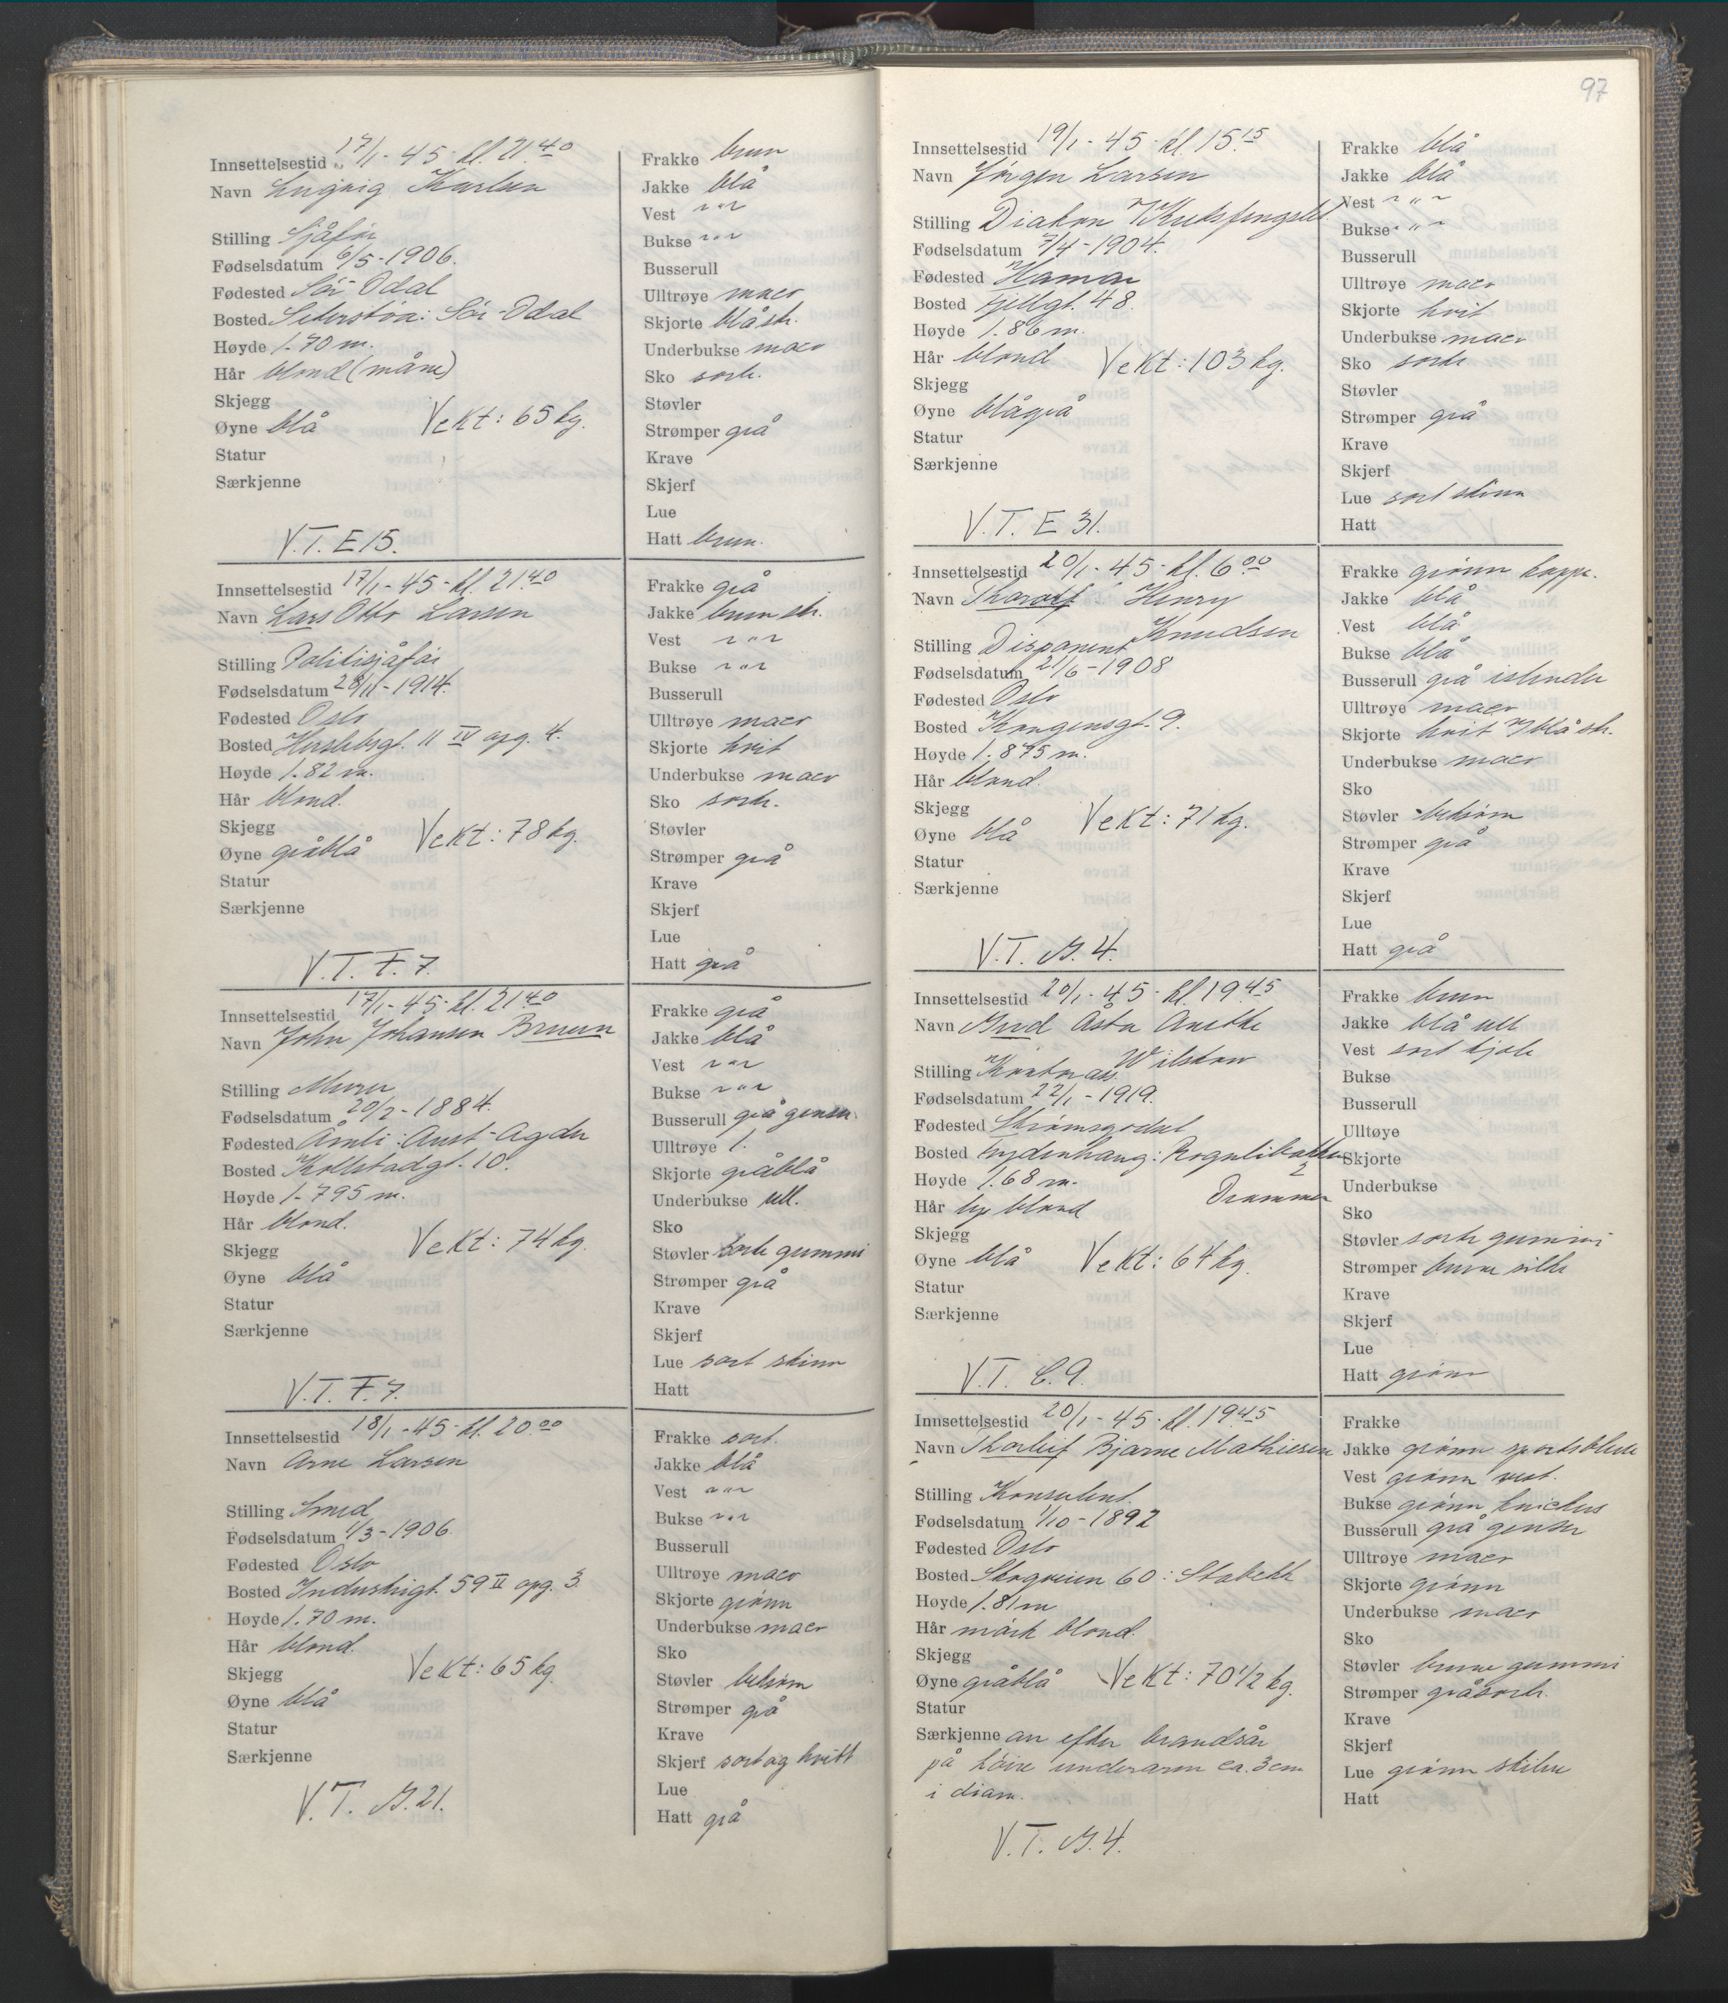 Innsettelsestid 17/1-45 kl. 21.40
Navn Karlsen
Stilling Sjåfør
Fødselsdatum 6/5-1906.
Fødested Sør-Odal
Bosted : Sør-Odal
Høyde 1.70 m.
Hår blond (måne)
Skjegg
Øyne blå Vekt: 65 kg.
Statur
Særkjenne
V.T. E 15.
Frakke brun
Jakke blå
Vest " " "
Bukse " " "
Busserull
Ulltrøye maco
Skjorte blåstr.
Underbukse maco
Sko sorte.
Støvler
Strømper grå
Krave
Skjerf
Lue
Hatt brun.
Innsettelsestid 17/1-45 kl. 21.40
Navn Lars Otto Larsen
Stilling Politisjåfør
Fødselsdatum 28/11-1914.
Fødested Oslo
Bosted Herslebsgt. 11 IV opg. 4.
Høyde 1.82 m.
Hår blond.
Skjegg
Øyne gråblå Vekt: 78 kg.
Statur
Særkjenne
V.T. F. 7.
Frakke grå
Jakke brun str.
Vest " " "
Bukse " " "
Busserull
Ulltrøye maco
Skjorte hvit
Underbukse maco
Sko sorte.
Støvler
Strømper grå
Krave
Skjerf
Lue
Hatt grå
Innsettelsestid 17/1-45 kl. 21.40
Navn John Johansen Bruun
Stilling Murer
Fødselsdatum 20/2-1884.
Fødested Åmli: Aust-Agder
Bosted Kolstadgt. 10.
Høyde 1.795 m.
Hår blond.
Skjegg
Øyne blå Vekt: 74 kg.
Statur
Særkjenne
V.T. F. 7.
Frakke grå
Jakke blå
Vest " " "
Bukse " " "
Busserull grå genser
Ulltrøye 1.
Skjorte gråblå
Underbukse ull.
Sko
Støvler sorte gummi
Strømper grå
Krave
Skjerf
Lue sort skinn
Hatt
Innsettelsestid 18/1-45 kl. 20.00
Navn Arne Larsen
Stilling Smed
Fødselsdatum 1/3-1906.
Fødested Oslo
Bosted Industrigt. 59 II opg. 3.
Høyde 1.70 m.
Hår blond.
Skjegg
Øyne blå Vekt: 65 kg.
Statur
Særkjenne
V.T. G. 21.
Frakke sort.
Jakke blå
Vest " " "
Bukse " " "
Busserull
Ulltrøye maco
Skjorte grønn
Underbukse maco
Sko
Støvler beksøm
Strømper grå
Krave
Skjerf sort og hvitt
Lue
Hatt grå
97
Innsettelsestid 19/1-45 kl. 15.15
Navn Jørgen Larsen
Stilling Diakon v/Kretsfengslet
Fødselsdatum 7/4-1904.
Fødested Hamar
Bosted Fjellgt. 48.
Høyde 1.86 m.
Hår blond Vekt: 103 kg.
Skjegg
Øyne blågrå
Statur
Særkjenne
V.T. E 31.
Frakke blå
Jakke blå
Vest " " "
Bukse " " "
Busserull
Ulltrøye maco
Skjorte hvit
Underbukse maco
Sko sorte
Støvler
Strømper grå
Krave
Skjerf
Lue sort skinn
Hatt
Innsettelsestid 20/1-45 kl. 6.00
Navn Thorolf Henry
Knudsen
Stilling Disponent
Fødselsdatum 21/6-1908
Fødested Oslo
Bosted Kongensgt. 9.
Høyde 1.875 m.
Hår blond.
Skjegg
Øyne blå Vekt: 71 kg.
Statur
Særkjenne
V.T. G. 4.
Frakke grønn kappe.
Jakke blå
Vest blå
Bukse blå
Busserull grå islender
Ulltrøye maco
Skjorte hvit m/blå str.
Underbukse maco
Sko
Støvler beksøm
Strømper grå
Krave
Skjerf
Lue
Hatt grå
Innsettelsestid 20/1-45 kl. 19.45
Navn Gud Åsta Anethe
Stilling Kontoras.
Fødselsdatum 22/1-1919.
Fødested Strømsgodset
Bosted Lydenhaug: 2
Drammen
Høyde 1.68 m.
Hår lys blond
Skjegg
Øyne blå Vekt: 64 kg.
Statur
Særkjenne
V.T. C. 9.
Frakke brun
Jakke blå ull
Vest sort kjole
Bukse
Busserull
Ulltøye
Skjorte
Underbukse
Sko
Støvler sorte gummi
Strømper brune silke
Krave
Skjerf
Lue
Hatt grønn
Innsettelsestid 20/1-45 kl. 19.45
Navn Thorleif Bjarne Mathiesen
Stilling Konsulent.
Fødselsdatum 1/10-1892
Fødested Oslo
Bosted Skogveien 60: Stabekk
Høyde 1.81 m
Hår mørk blond.
Skjegg
Øyne gråblå Vekt: 70 1/2 kg.
Statur
Særkjenne arr efter brandsår
på høire underarm ca. 3 cm
i diam.
V.T. G. 4.
Frakke
Jakke grønn sportsbluse
Vest grønn vest.
Bukse grønn knickers
Busserull grå genser
Ulltrøye maco
Skjorte grønn
Underbukse maco
Sko
Støvler brune gummi
Strømper gråsorte.
Krave
Skjerf
Lue grønn skilue
Hatt